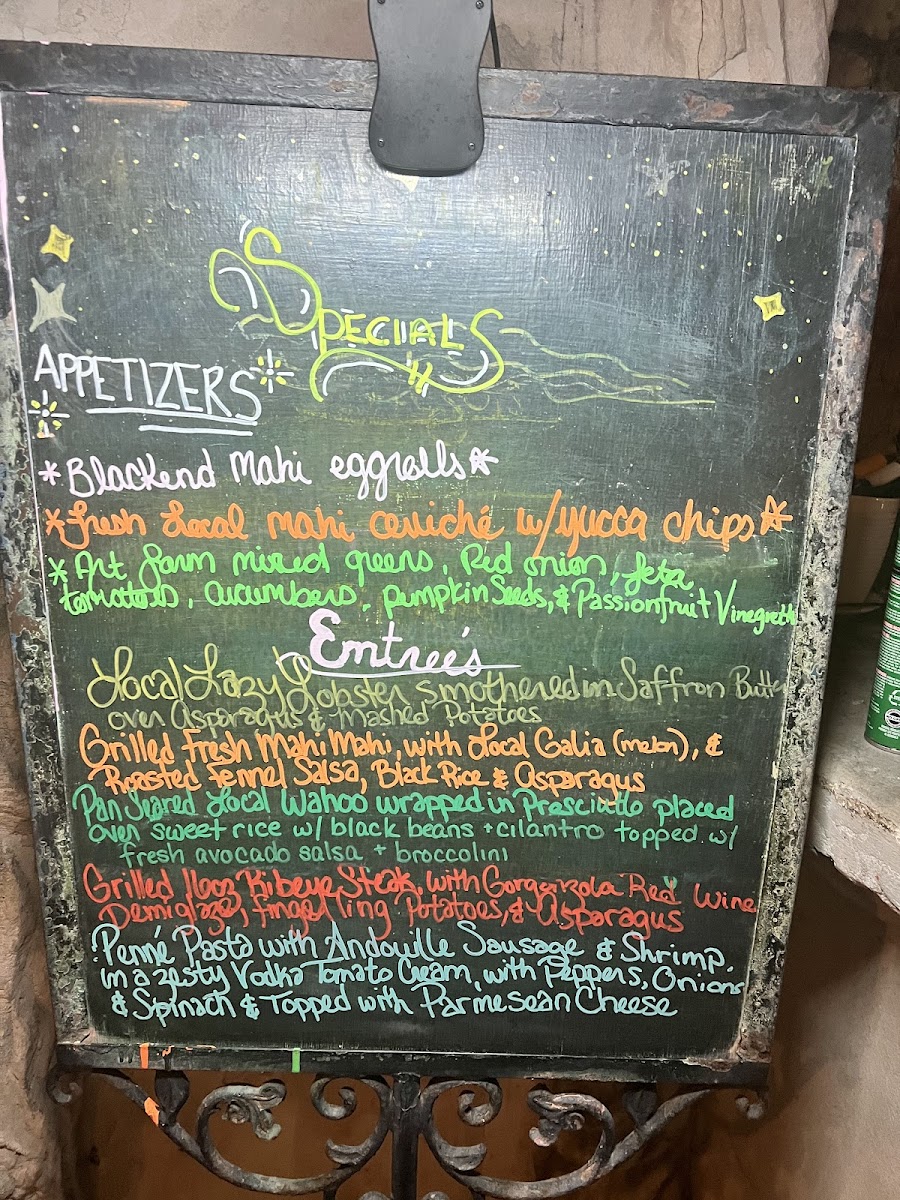 Specials
APPETIZERS
*Blackend Mahi eggrolls*
*Fresh Local mahi ceviché w/yucca chips*
*Art farm mixed greens, Red onion, feta,
tomatoes, cucumbers, pumpkin Seeds, & Passionfruit Vinegrette
Entree's
Local Lazy Lobster smothered in Saffron Butter
over Asparagus & Mashed Potatoes
Grilled Fresh Mahi Mahi, with Local Galia (melon), &
Roasted Fennel Salsa, Black Rice & Asparagus
Pan Seared Local Wahoo wrapped in Presciutto placed
over sweet rice w/ black beans + cilantro topped w/
fresh avocado salsa + broccolini
Grilled 16oz Ribeye Steak, with Gorgonzola Red Wine
Demiglaze, fingerling Potatoes, & Asparagus
Penné Pasta with Andouille Sausage & Shrimp.
in a zesty Vodka Tomato Cream, with Peppers, Onions
& Spinach & Topped with Parmesean Cheese